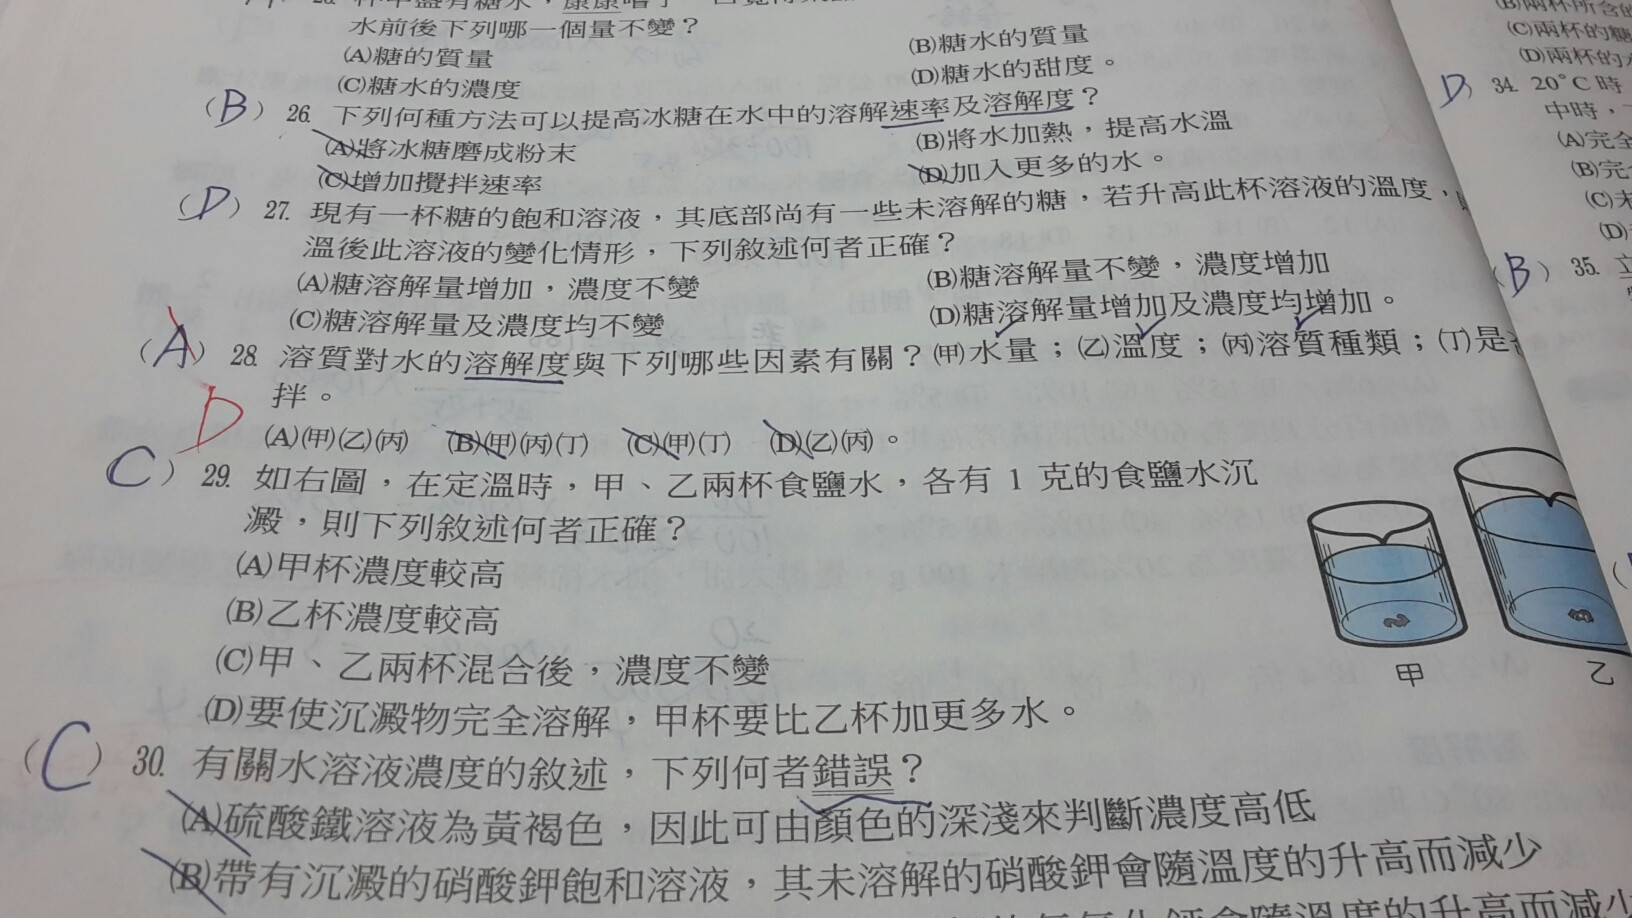 水前後下列哪一個量不變？
(A)糖的質量 (B)糖水的質量
(C)糖水的濃度 (D)糖水的甜度。
(B) 26. 下列何種方法可以提高冰糖在水中的溶解速率及溶解度？
(A)將冰糖磨成粉末 (B)將水加熱，提高水溫
(C)增加攪拌速率 (D)加入更多的水。
(D) 27. 現有一杯糖的飽和溶液，其底部尚有一些未溶解的糖，若升高此杯溶液的溫度，
溫後此溶液的變化情形，下列敘述何者正確？
(A)糖溶解量增加，濃度不變 (B)糖溶解量不變，濃度增加
(C)糖溶解量及濃度均不變 (D)糖溶解量增加及濃度均增加。
(A) 28. 溶質對水的溶解度與下列哪些因素有關？(甲)水量；(乙)溫度；(丙)溶質種類；(丁)是
拌。
D
(A)(甲)(乙)(丙) (B)(甲)(丙)(丁) (C)(甲)(丁) (D)(乙)(丙)。
C) 29. 如右圖，在定溫時，甲、乙兩杯食鹽水，各有 1 克的食鹽水沉
澱，則下列敘述何者正確？
(A)甲杯濃度較高
(B)乙杯濃度較高
(C)甲、乙兩杯混合後，濃度不變
(D)要使沉澱物完全溶解，甲杯要比乙杯加更多水。
甲
乙
(C) 30. 有關水溶液濃度的敘述，下列何者錯誤？
(A)硫酸鐵溶液為黃褐色，因此可由顏色的深淺來判斷濃度高低
(B)帶有沉澱的硝酸鉀飽和溶液，其未溶解的硝酸鉀會隨溫度的升高而減少
會隨溫度的升高而減少
(B)兩杯所含的
(C)兩杯的糖
(D)兩杯的
D) 34. 20°C時
中時，
(A)完全
(B)完
(C)未
(D)
(B) 35.